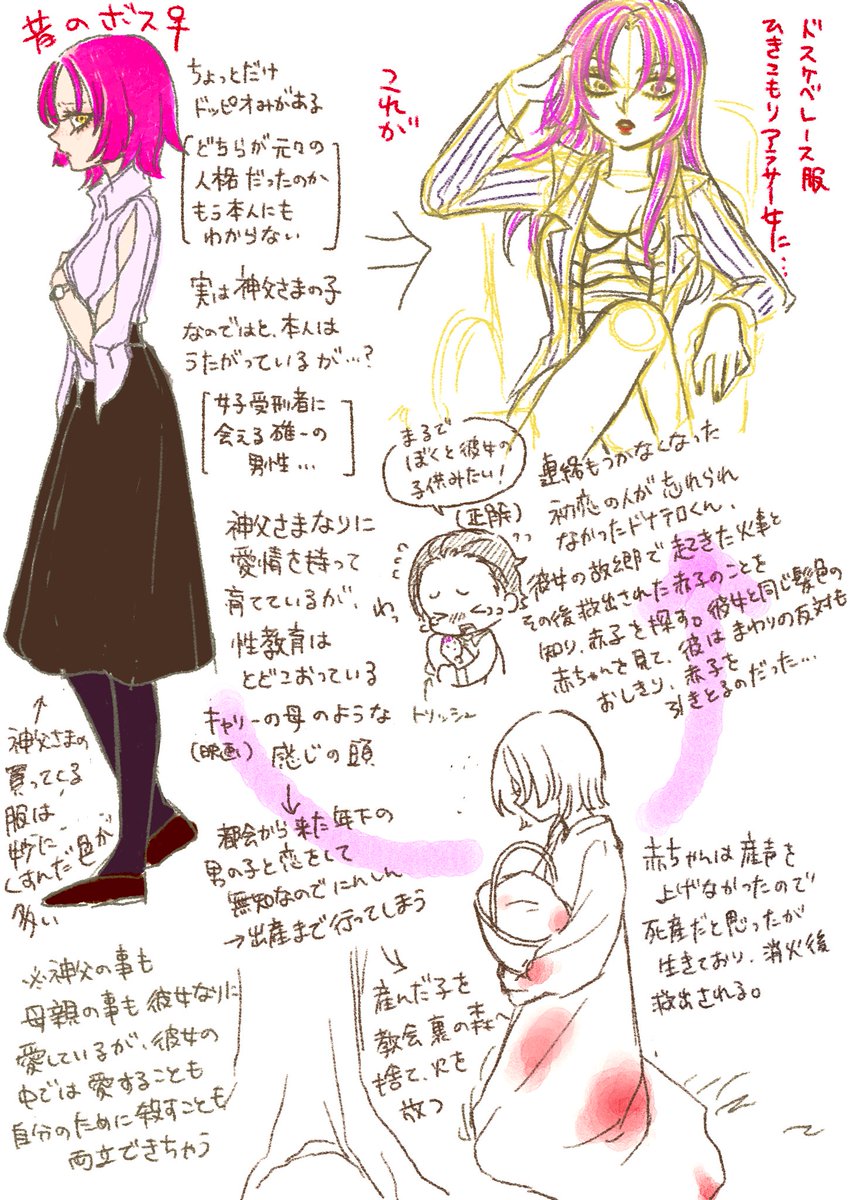 昔のボス♀
ちょっとだけ
ドッピオみがある
どちらが元々の
人格だったのか
もう本人にも
わからない
実は神父さまの子
なのではと、本人は
うたがっているが…?
女子受刑者に
会える唯一の
男性…
神父さまなりに
愛情を持って
育てているが、
性教育は
とどこおっている
キャリーの母のような
(映画) 感じの頭
↓
都会から来た年下の
男の子と恋をして
無知なのでにんしん
→出産まで行ってしまう
これが
ドスケベレース服
ひきこもりアラサー女に…
まるで
ぼくと彼女の
子供みたい!
(正解)
わっ
トリッシュ
連絡もつかなくなった
初恋の人が忘れられ
なかったドナテロくん、
彼女の故郷で起きた火事と
その後救出された赤子のことを
知り、赤子を探す。彼女と同じ髪色の
赤ちゃんを見て、彼はまわりの反対も
おしきり、赤子を
引きとるのだった…
神父さまの
買ってくる
服は
くすんだ色が
多い
産んだ子を
教会裏の森へ
捨て、火を
放つ
赤ちゃんは産声を
上げなかったので
死産だと思ったが
生きており、消火後
救出される。
※神父の事も
母親の事も彼女なりに
愛しているが、彼女の
中では愛することも
自分のために殺すことも
両立できちゃう